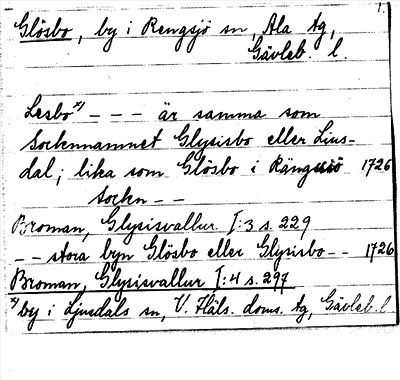 1.
Glösbo, by i Rengsjö sn, Ala tg,
Gävleb. l.
Lesbo x) - - - är samma som
Sockennamnet Glysisbo eller Lius-
dal; lika som Glösbo i Rängsiö 1726
Sockn - -
Broman, Glysisvallur I:3 s. 229
- - stora byn Glösbo eller Glysisbo - - 1726
Broman, Glysisvallur I:4 s. 297
x) by i Ljusdals sn, V. Häls. doms. tg, Gävleb. l